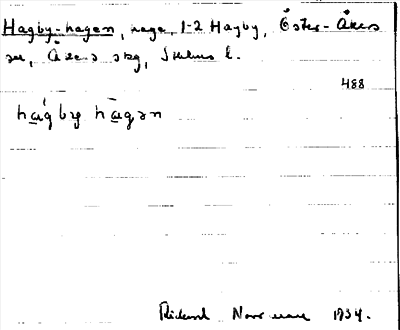 Hagby-hagen, hage, 1-2 Hagby, Öster-Åkers
sn, Åkers skg, Sthlms l.
488
hagby hagən
Rickard 1934.